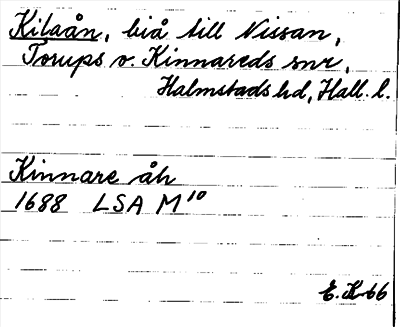 Kilaån, biå till Nissan,
Torups o. Kinnareds snr,
Halmstads hd, Hall. l.
Kinnare åh
1688 LSA M 10
E. K-66